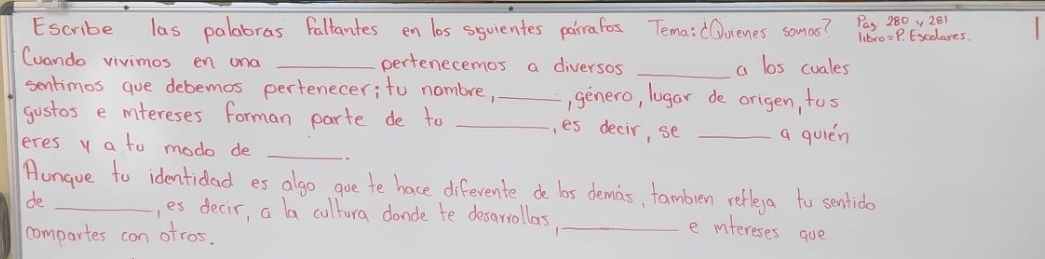 Escribe las palabras faltantes en los siguientes párrafos Tema: ¿Quienes somos? Pag 280 y 281
libro = P. Escolares.
Cuando vivimos en una ________ pertenecemos a diversos ________ a los cuales
sentimos que debemos pertenecer; tu nombre, ______, género, lugar de origen, tus
gustos e intereses forman parte de tu ________, es decir, se ______ a quién
eres y a tu modo de ______.
Aunque tu identidad es algo que te hace diferente de los demás, tambien refleja tu sentido
de ________, es decir, a la cultura donde te desarrollas, ________ e intereses que
compartes con otros.